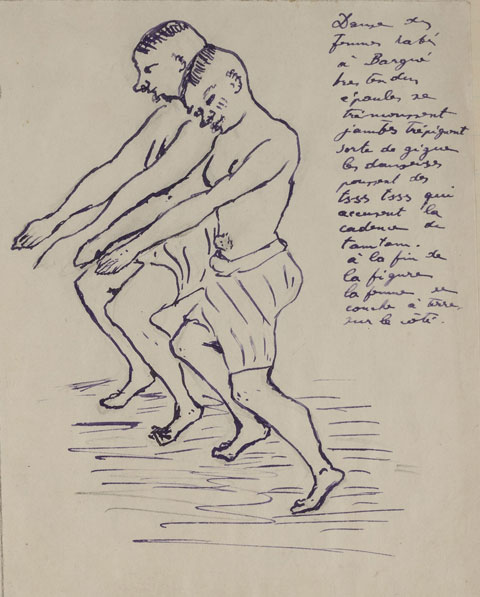 Danse des
femmes
à
bras tendus
épaules se
trémoussent
jambes trépignent
sorte de gigue
les danseuses
poussent des
tsss tsss qui
accusent la
cadence du
tamtam.
à la fin de
la figure
la femme se
couche à terre
sur le côté.